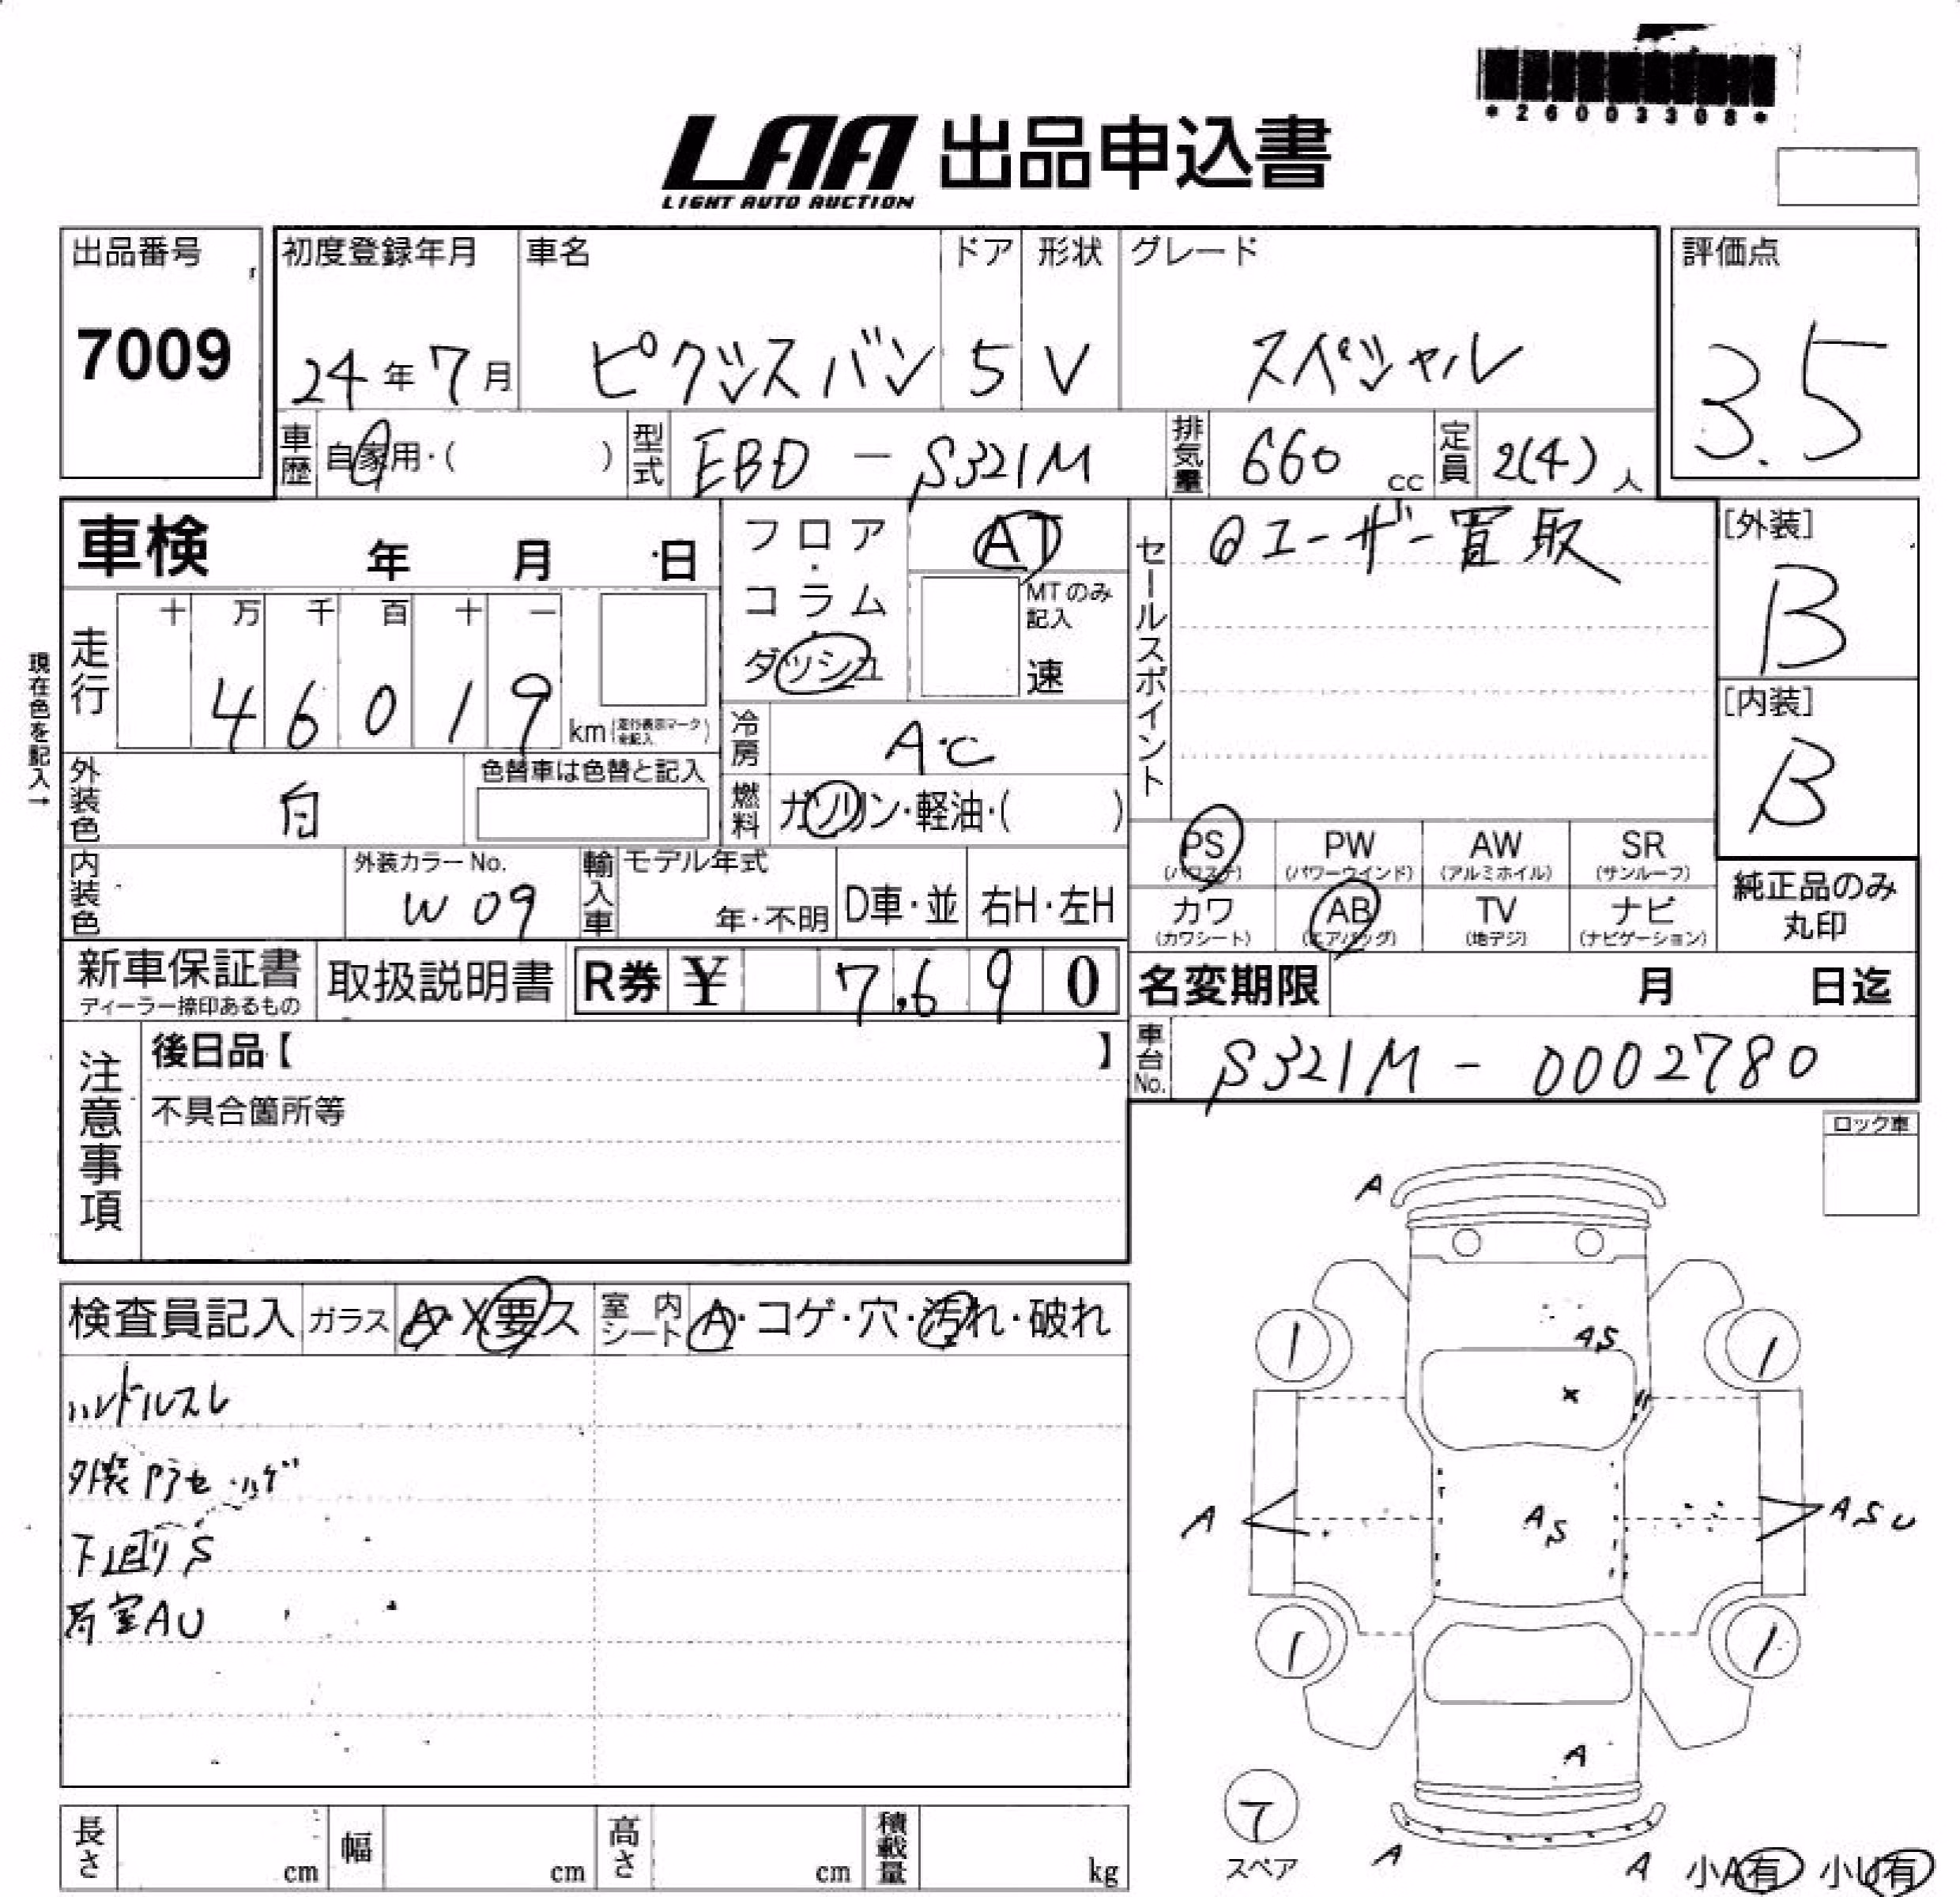 *26003308*
LAA 出品申込書
LIGHT AUTO AUCTION
出品番号
7009
初度登録年月
24年7月
車名
ピクシスバン
ドア
5
形状
V
グレード
スペシャル
評価点
3.5
車歴
自家用・( )
型式
EBD-S321M
排気量
660 cc
定員
2(4)人
車検 年 月 日
走行
十 万 千 百 十 一
4 6 0 1 9 km
現在色を記入→
フロア・コラム・ダッシュ
AT
MTのみ記入
速
冷房
AC
燃料
ガソリン・軽油・( )
セールスポイント
ユーザー買取
[外装]
B
[内装]
B
外装色
白
色替車は色替と記入
内装色
外装カラーNo.
W09
輸入車
モデル年式
年・不明
D車・並
右H・左H
PS
(パワステ)
PW
(パワーウインド)
AW
(アルミホイル)
SR
(サンルーフ)
カワ
(カワシート)
AB
(エアバッグ)
TV
(地デジ)
ナビ
(ナビゲーション)
純正品のみ
丸印
新車保証書
ディーラー捺印あるもの
取扱説明書
R券 ¥ 7,690
名変期限 月 日迄
車台No.
S321M-0002780
注意事項
後日品【 】
不具合箇所等
ロック車
検査員記入
ガラス
A・X要ス
室内シート
A・コゲ・穴・汚れ・破れ
ハンドルスレ
下回りS
荷室AU
A
AS
x
1
1
A
AS
ASU
1
1
A
T
スペア
A
A
小A有 小U有
長さ cm
幅 cm
高さ cm
積載量 kg